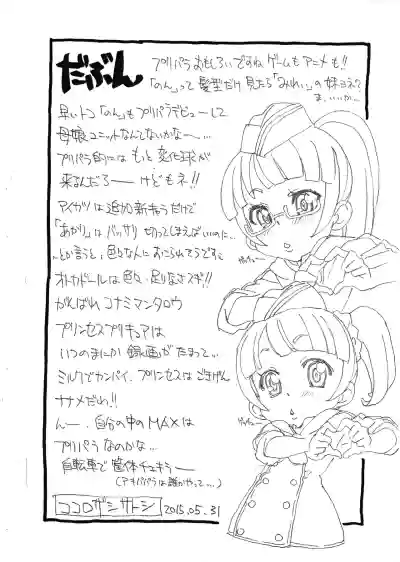 だぶん
プリパラおもしろいですねゲームもアニメも!!
「のん」って髪型だけ見たら「みれい」の妹ヨネ?
ま、いいか…
早いトコ「のん」もプリパラデビューして
母娘ユニットなんてないかな〜…
プリパラ的には もっと変化球が
来るんだろ── けどもネ!!
アイカツは追加新キャラだけで
「あかり」は バッサリ
とか言うと、色々な人におこられそうですぇ
オトカドールは色々足りなすぎ!!
がんばれ コナミマンタロウ
プリンセスプリキュアは
いつのまにか録画がたまって…
ミルクでカンパイ、プリンセスはごきげん
ナナメだわ!!
んー、自分の中のMAXは
プリパラなのかな…
自転車で筐体チェキラー
(アキバパラは誰かやって…)
ココロザシサトシ 2015.05.31